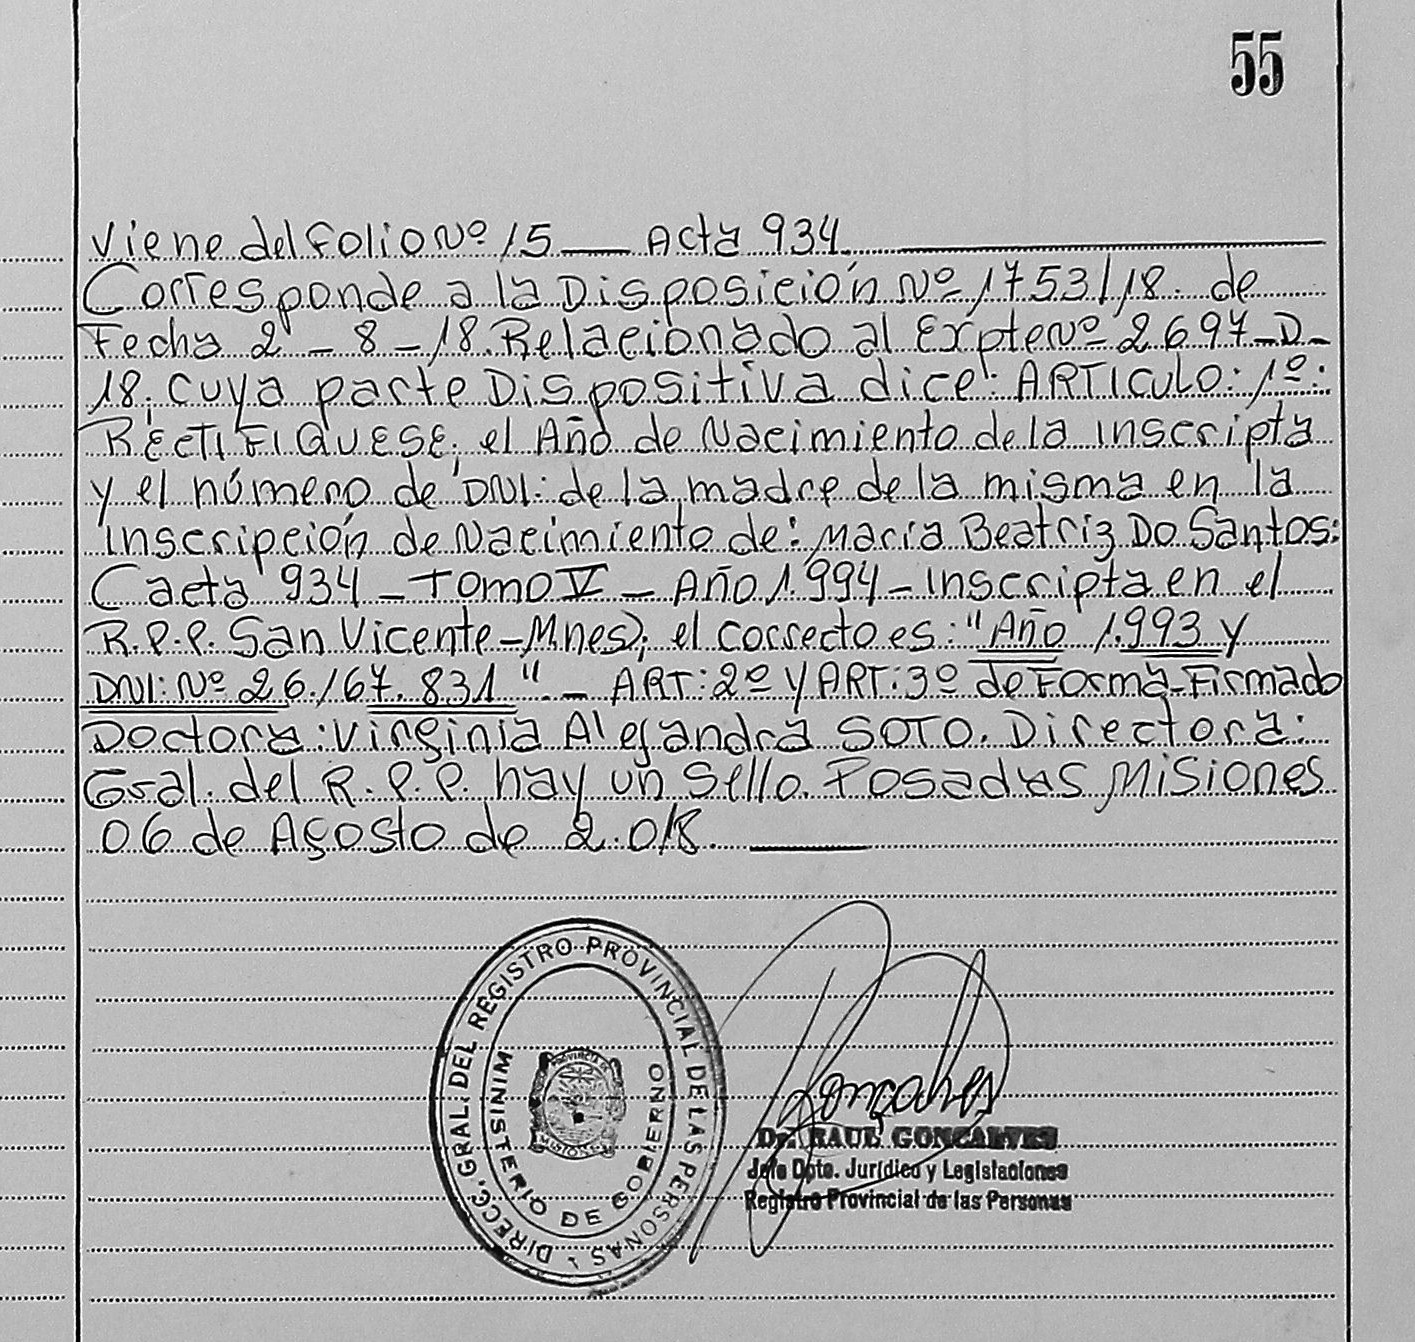 55
Viene del Folio Nº 15 — Acta 934.
Corresponde a la Disposición Nº 1753/18. de
Fecha 2 - 8 - 18. Relacionado al Expte Nº 2697-D-
18. cuya parte Dispositiva dice: ARTICULO: 1º:
RECTIFIQUESE; el Año de Nacimiento de la inscripta
y el número de DNI: de la madre de la misma en la
inscripción de Nacimiento de: María Beatriz Do Santos:
(acta 934 - Tomo V - Año 1.994 - inscripta en el
R.P.P. San Vicente - Mnes); el correcto es: "Año 1.993 y
DNI: Nº 26.167.831". - ART: 2º y ART: 3º de Forma - Firmado
Doctora: Virginia Alejandra SOTO. Directora:
Gral. del R.P.P. hay un Sello. Posadas, Misiones
06 de Agosto de 2.018. —
DIRECC. GRAL. DEL REGISTRO PROVINCIAL DE LAS PERSONAS
MINISTERIO DE GOBIERNO
PROVINCIA DE
MISIONES
Goncalves
Dr. RAUL GONCALVES
Jefe Dpto. Jurídico y Legislaciones
Registro Provincial de las Personas